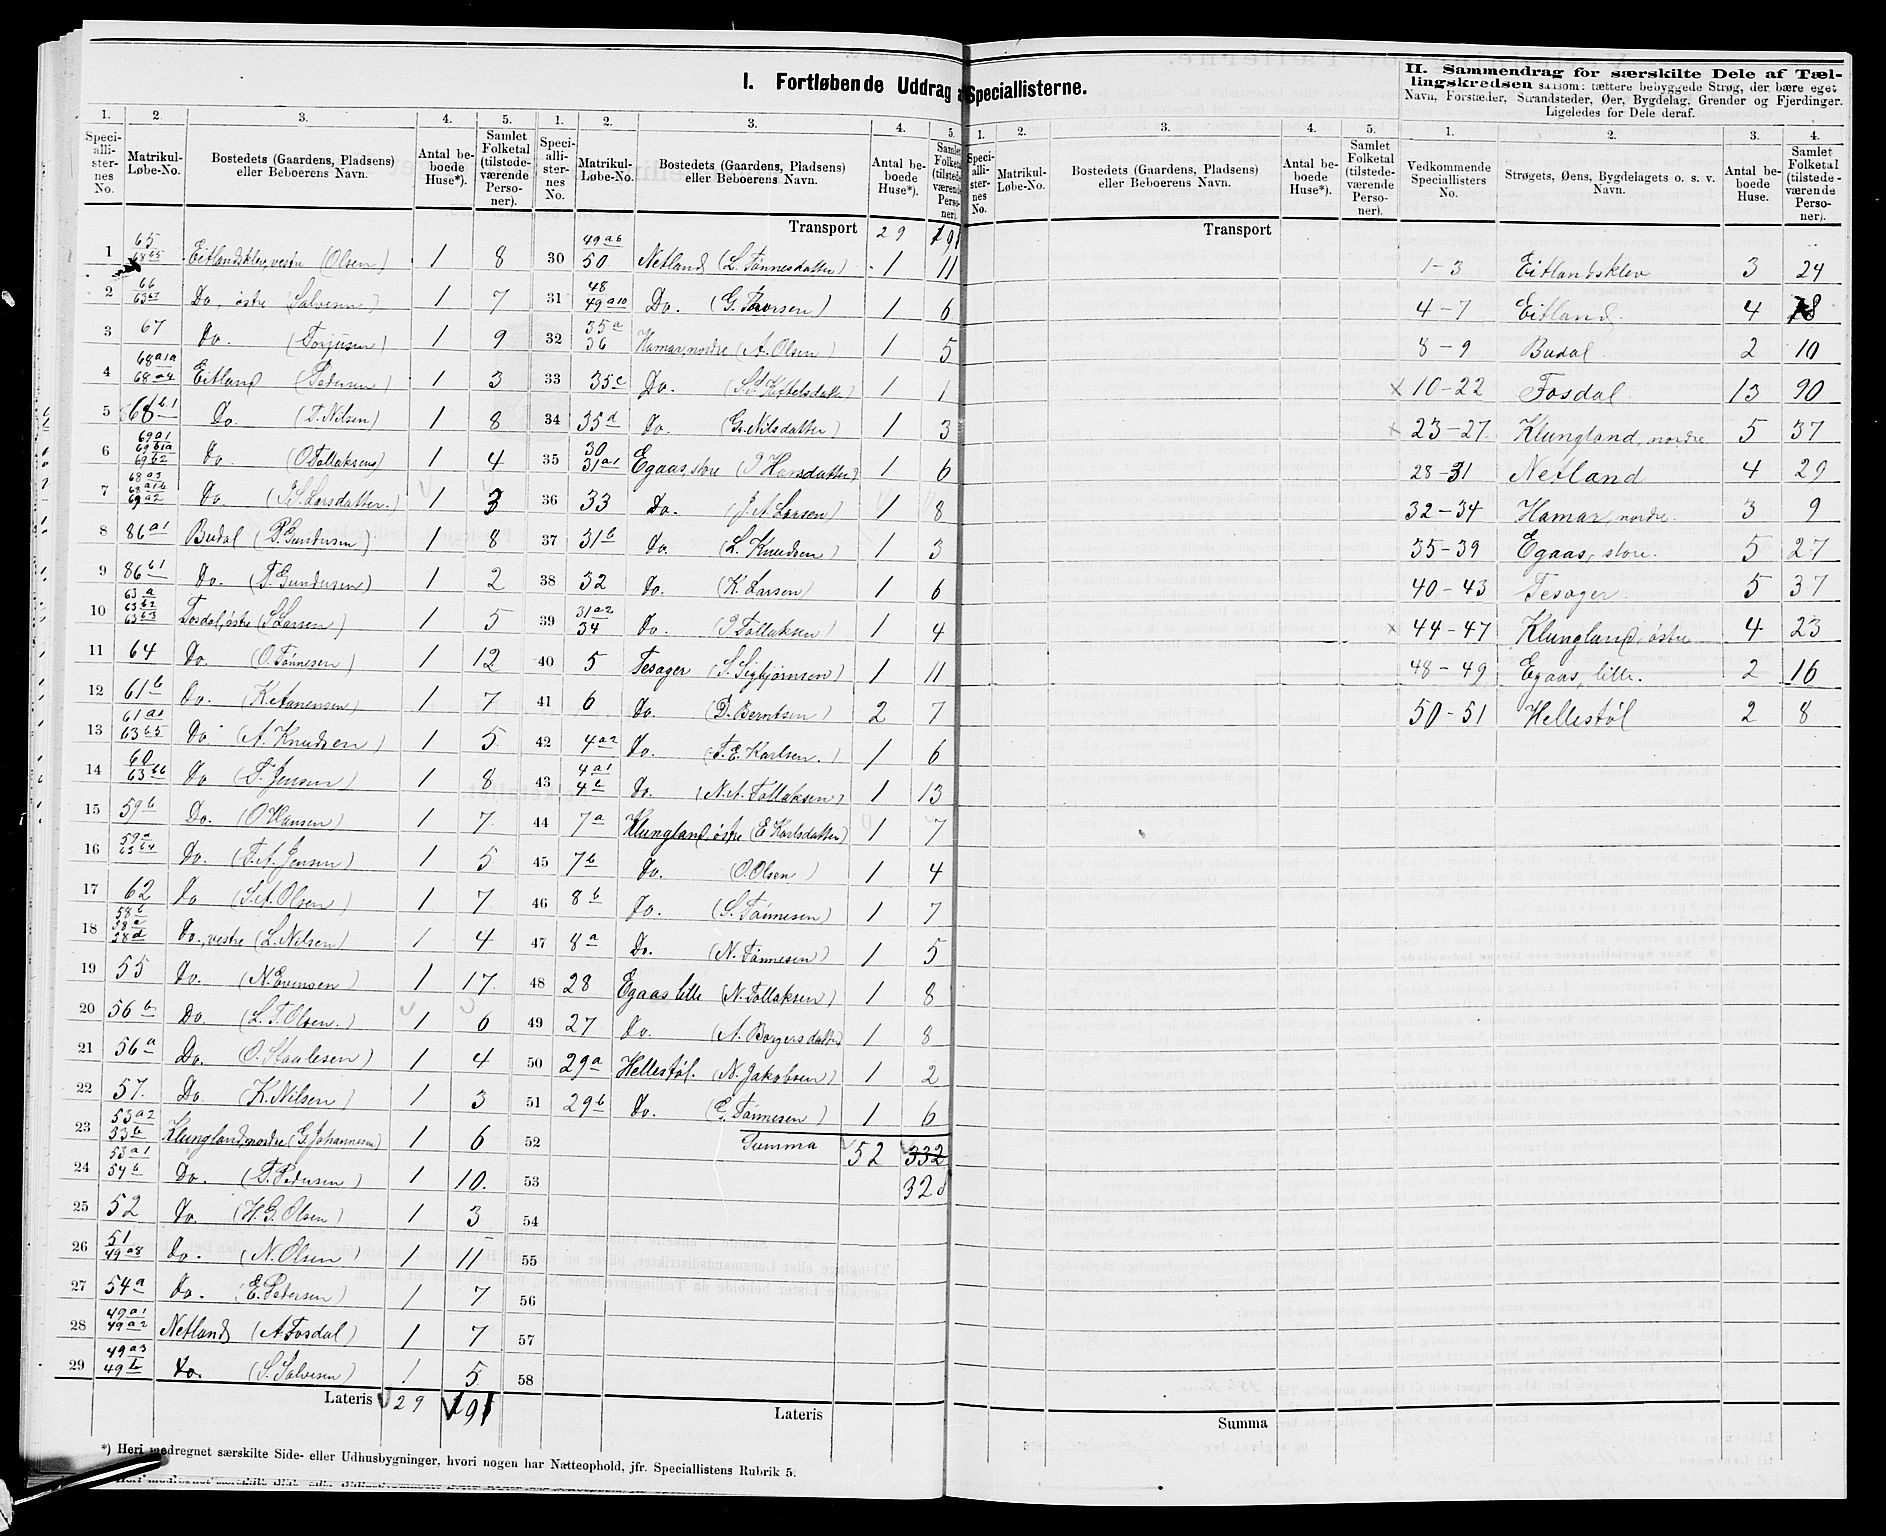 I. Fortløbende Uddrag a Speciallisterne.
1. 2. 3. 4. 5.
Speciallisternes No. Matrikul-Løbe-No. Bostedets (Gaardens, Pladsens) eller Beboerens Navn. Antal beboede Huse*). Samlet Folketal (tilstedeværende Personer).
1 65 68 65 Eitlandsklev, vestre (Olsen) 1 8
2 66 63 67 Do, østre (Salvesen) 1 7
3 67 Do. (Torjusen) 1 9
4 68 a1a 68 a4 Eitland (Pedersen) 1 3
5 68 b1 Do. (T. Nilsen) 1 8
6 69 a1 69 b1a 69 b2 Do (O Tollaksens) 1 4
7 68 a3 68 a1b 69 a2 Do. (P.S. Larsdatter.) 1 3
8 86 a1 Budal (P. Gundersen) 1 8
9 86 b1 Do. (T. Gundersen) 1 2
10 63 a 63 b2 63 b3 Fosdal, østre (S Larsen) 1 5
11 64 Do. (O. Tønnesen) 1 12
12 61 b Do. (K. Aanensen) 1 7
13 61 a1 63 b5 Do (A. Knudsen) 1 5
14 60 63 b6 Do (T. Jensen) 1 8
15 59 b Do. (O Hansen) 1 7
16 59 a 63 b4 Do. (T. A. Jensen) 1 5
17 62 Do (S. A. Olsen) 1 7
18 58 b 58 a 58 d Do., vestre (L. Nilsen) 1 4
19 55 Do. (N. Evensen) 1 17
20 56 b Do. (L. T. Olsen.) 1 6
21 56 a Do. (O. Staalesen) 1 4
22 57. Do. (K. Nilsen) 1 3
23 53 a2 53 b Klungland, nordre (G. Johannesen) 1 6
24 53 a1 54 b Do. (T. Pedersen) 1 10.
25 52 Do (H. G. Olsen) 1 3
26 51 49 a8 Do. (N. Olsen) 1 11
27 54 a Do. (E. Petersen) 1 7
28 49 a1 49 a2 Netland (A Fosdal) 1 7
29 49 a3 49 b Do. (S. Salvesen) 1 5
Lateris 29 191
1. 2. 3. 4. 5.
Speciallisternes No. Matrikul-Løbe-No. Bostedets (Gaardens, Pladsens) eller Beboerens Navn. Antal beboede Huse*). Samlet Folketal (tilstedeværende Personer).
Transport 29 191
30 49 a6 50 Netland (L. Tønnesdatter) 1 11
31 48 49 a10 Do. (G. Thorsen) 1 6
32 35 a 36 Hamar, nordre (A. Olsen) 1 5
33 35 c Do. (Kjettelsdatter) 1 1
34 35 d Do. (G. Nilsdatter) 1 3
35 30 31 a1 Egaas, store (I Hansdatter) 1 6
36 33 Do. (J. A. Larsen) 1 8
37 31 b Do. (L. Knudsen) 1 3
38 32 Do. (K. Larsen) 1 6
39 31 a2 34 Do. (I Tollaksen) 1 4
40 5 Tesager (S. Sigbjørnsen) 1 11
41 6 Do. (D. Berntsen) 2 7
42 4 a2 Do. (T. E. Karlsen.) 1 6
43 4 a1 4 b Do. (N. A. Tollaksen) 1 13
44 7 a Klungland, østre (E Karlsdatter) 1 7
45 7 b Do. (O. Olsen) 1 4
46 8 b Do. (S. Tønnesen) 1 7
47 8 a Do. (N. Tønnesen) 1 5
48 28 Egaas lille (N. Tollaksen) 1 8
49 27 Do. (A. Borgersdatter) 1 8
50 29 a Hellestøl. (N. Jakobsen) 1 2
51 29 b Do. (E. Tønnesen) 1 6
52 Summa 52 332
53 328
54
55
56
57
58
Lateris
1. 2. 3. 4. 5.
Speciallisternes No. Matrikul-Løbe-No. Bostedets (Gaardens, Pladsens) eller Beboerens Navn. Antal beboede Huse*). Samlet Folketal (tilstedeværende Personer).
Transport
Summa
II. Sammendrag for særskilte Dele af Tællingskredsen saasom: tættere bebyggede Strøg, der bære eget
Navn, Forstæder, Strandsteder, Øer, Bygdelag, Grender og Fjerdinger.
Ligeledes for Dele deraf.
1. 2. 3. 4.
Vedkommende Speciallisters No. Strøgets, Øens, Bygdelagets o. s. v. Navn. Antal beboede Huse. Samlet Folketal (tilstedeværende Personer).
1-3 Eitlandsklev 3 24
4-7 Eitland 4 18
8-9 Budal 2 10
x 10-22 Fosdal 13 90
x 23-27 Klungland, nordre 5 37
28-31 Netland 4 29
32-34 Hamar, nordre. 3 9
35-39 Egaas, store. 5 27
40-43 Tesager 5 37
x 44-47 Klungland, østre 4 23
48-49 Egaas, lille. 2 16
50-51 Hellestøl 2 8
*) Heri medregnet særskilte Side- eller Udhusbygninger, hvori nogen har Natteophold, jfr. Speciallistens Rubrik 5.